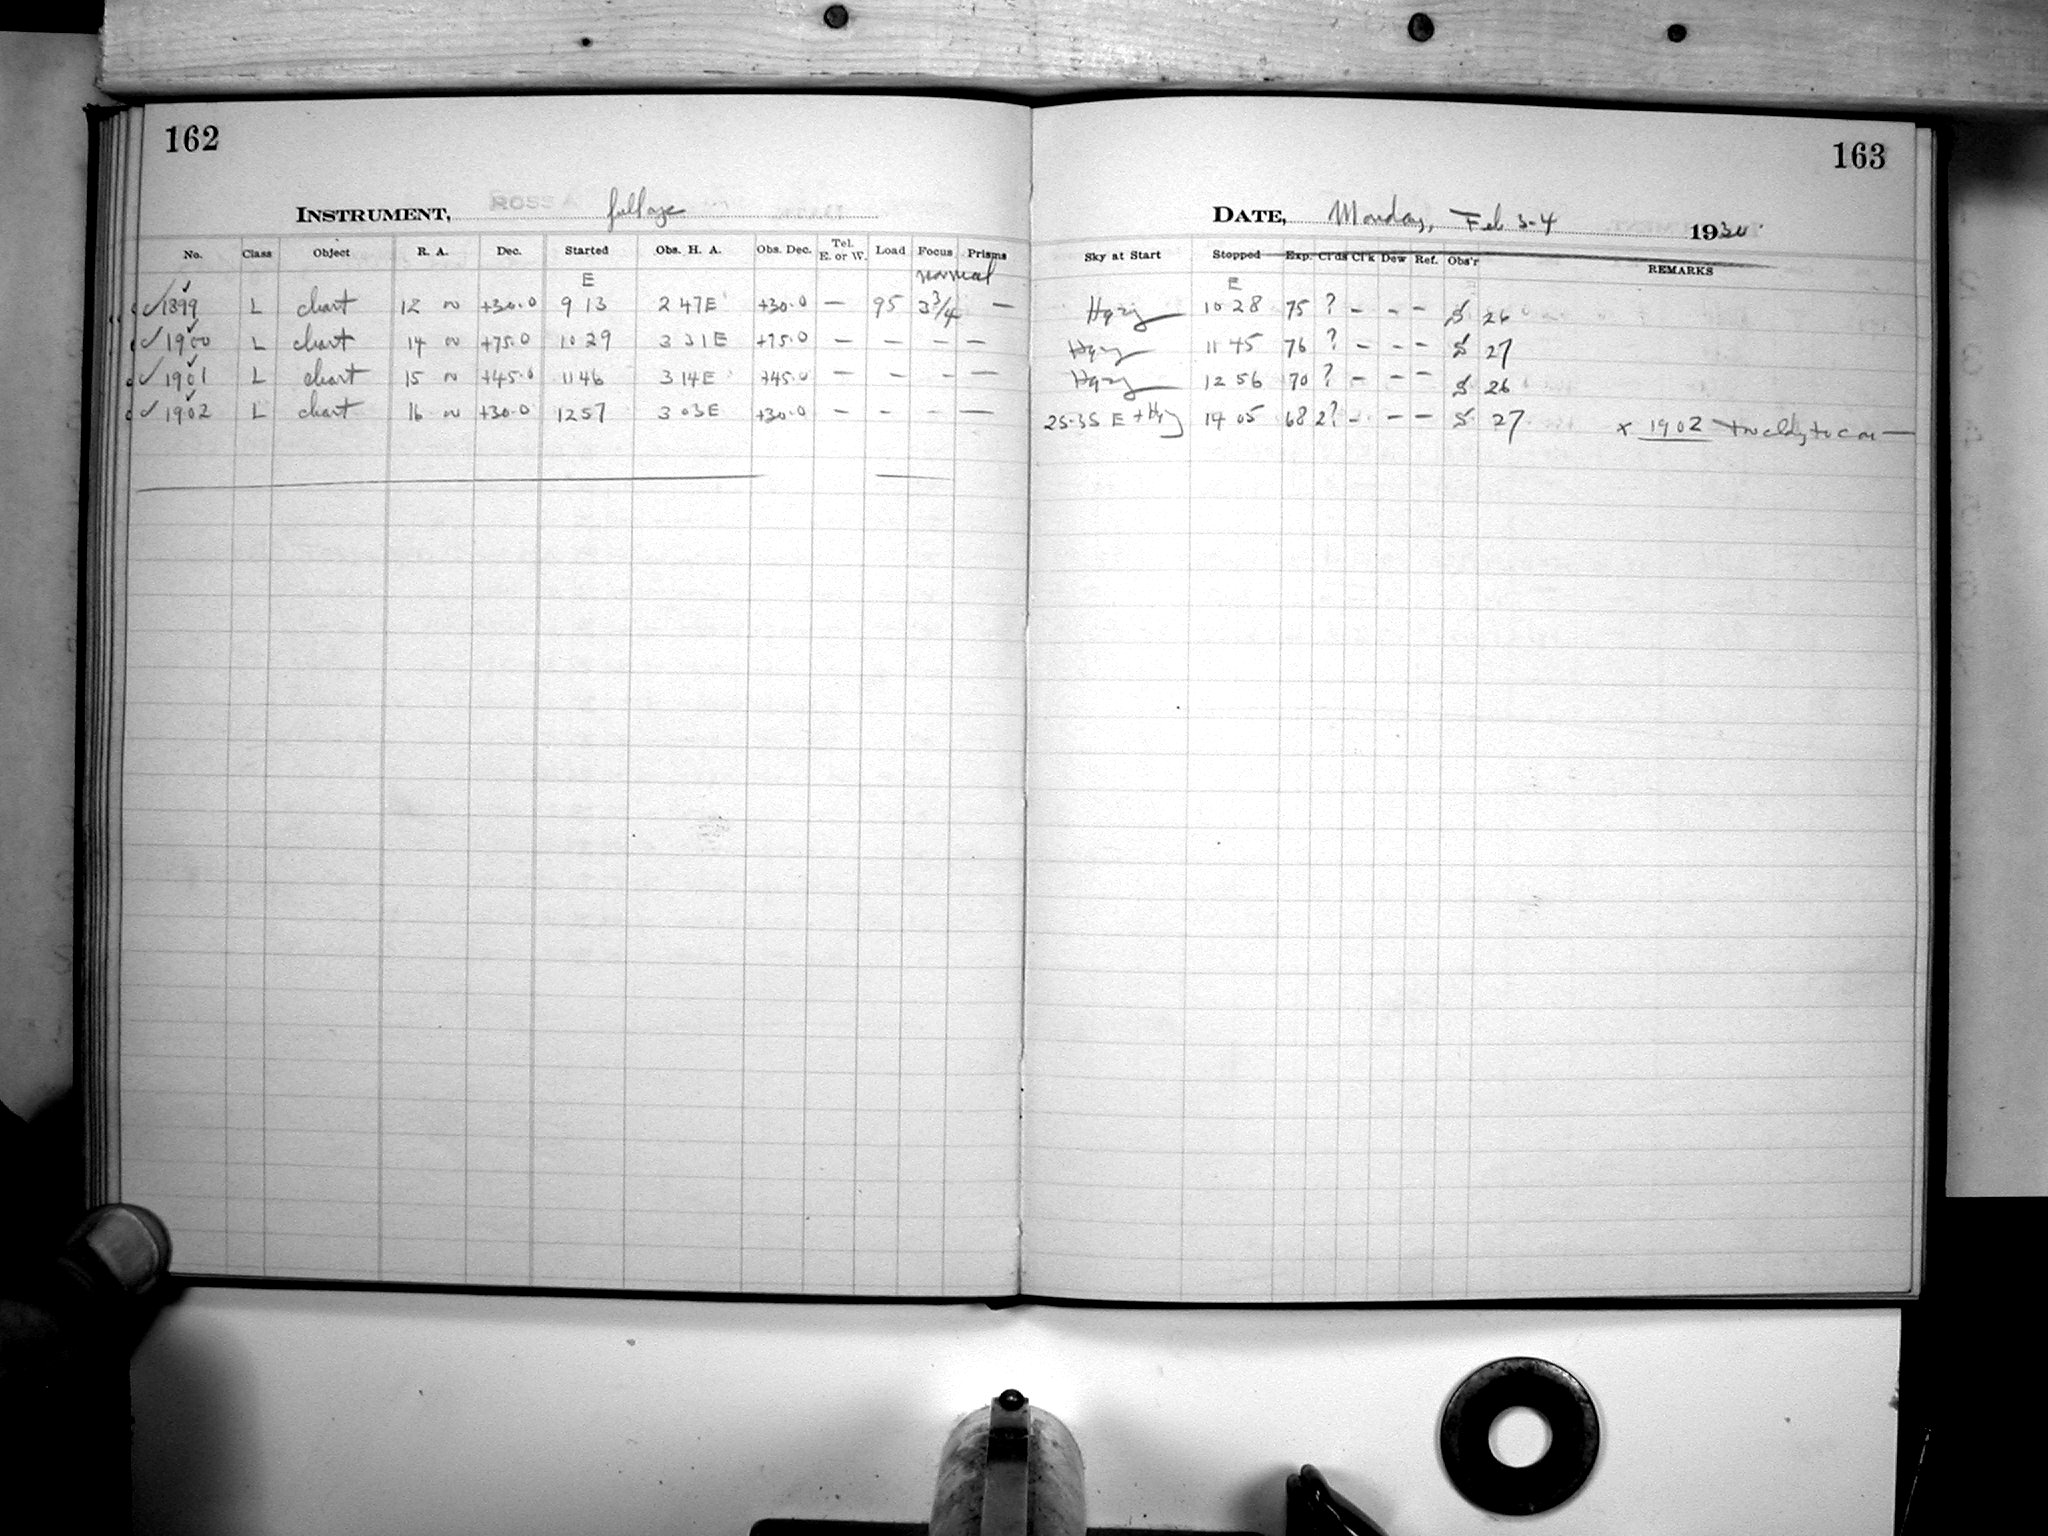 162
INSTRUMENT, ROSS A
No. Class Object R. A. Dec. Started Obs. H. A. Obs. Dec. Tel. E. or W. Load Focus Prisms
E normal
✓1899 L chart 12 ~ +30.0 9 13 2 47E +30.0 — 95 3 3/4 —
✓1900 L chart 14 ~ +75.0 10 29 3 31E +75.0 — — — —
✓1901 L chart 15 ~ +45.0 11 46 3 14E +45.0 — — — —
✓1902 L chart 16 ~ +30.0 12 57 3 03E +30.0 — — — —
163
DATE, Monday, Feb 3-4 1930
Sky at Start Stopped Exp. Cl'ds Cl'k Dew Ref. Obs'r REMARKS
E
Hazy 10 28 75 ? – – – S 26
Hazy 11 45 76 ? – – – S 27
Hazy 12 56 70 ? – – – S 26
25-35 E + Hzy 14 05 68 2? – – – S 27 x 1902 too cldy to con —